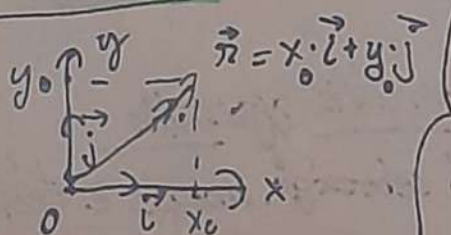 y
y₀
r⃗ = x₀·i⃗ + y₀·j⃗
j⃗
0 i⃗ x₀ x